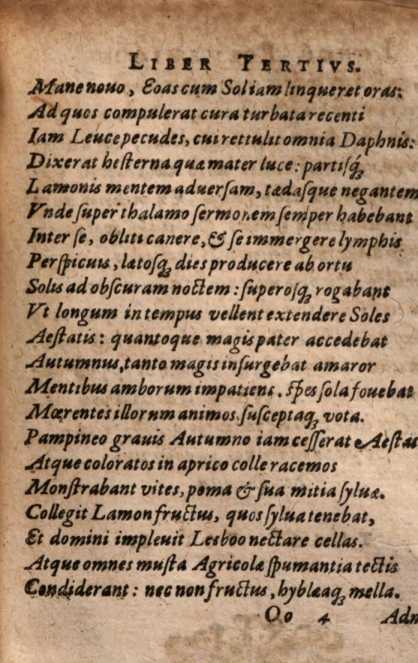 LIBER TERTIVS.
Mane nouo, Eoas cum Sol iam linqueret oras:
Ad quos compulerat cura turbata recenti
Iam Leuce pecudes, cui rettulit omnia Daphnis:
Dixerat hesterna quæ mater luce: partisq́;
Lamonis mentem aduersam, tædasque negantem
Vnde super thalamo sermonem semper habebant
Inter se, obliti canere, & se immergere lymphis
Perspicuis, latosq; dies producere ab ortu
Solis ad obscuram noctem: superosq; rogabant
Vt longum in tempus vellent extendere Soles
Aestatis: quantoque magis pater accedebat
Autumnus, tanto magis insurgebat amaror
Mentibus amborum impatiens. spes sola fouebat
Mœrentes illorum animos, susceptaq; vota.
Pampineo grauis Autumno iam cesserat Aestas
Atque coloratos in aprico colle racemos
Monstrabant vites, poma & sua mitia syluæ.
Collegit Lamon fructus, quos sylua tenebat,
Et domini impleuit Lesboo nectare cellas.
Atque omnes musta Agricolæ spumantia tectis
Condiderant: nec non fructus, hyblæaq; mella.
Oo 4 Adn